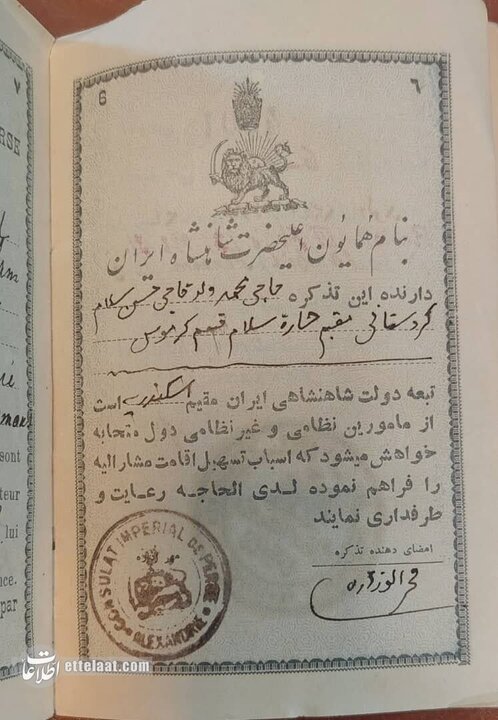 6 ٦
بنام همایون اعلیحضرت شاهنشاه ایران
دارنده این تذکره حاجی محمد ولد حاجی حسن سلام
کردستانی مقیم حارة سلام قسم کرموس
تبعه دولت شاهنشاهی ایران مقیم اسکندریه است
از مامورین نظامی و غیر نظامی دول متحابه
خواهش میشود که اسباب تسهیل اقامت مشارالیه
را فراهم نموده لدی الحاجه رعایت و
طرفداری نمایند
امضای دهنده تذکره
CONSULAT IMPERIAL DE PERSE
ALEXANDRIE
٧
RSE
man
sont
teur
lui
nce.
par
اطلاعات ettelaat.com